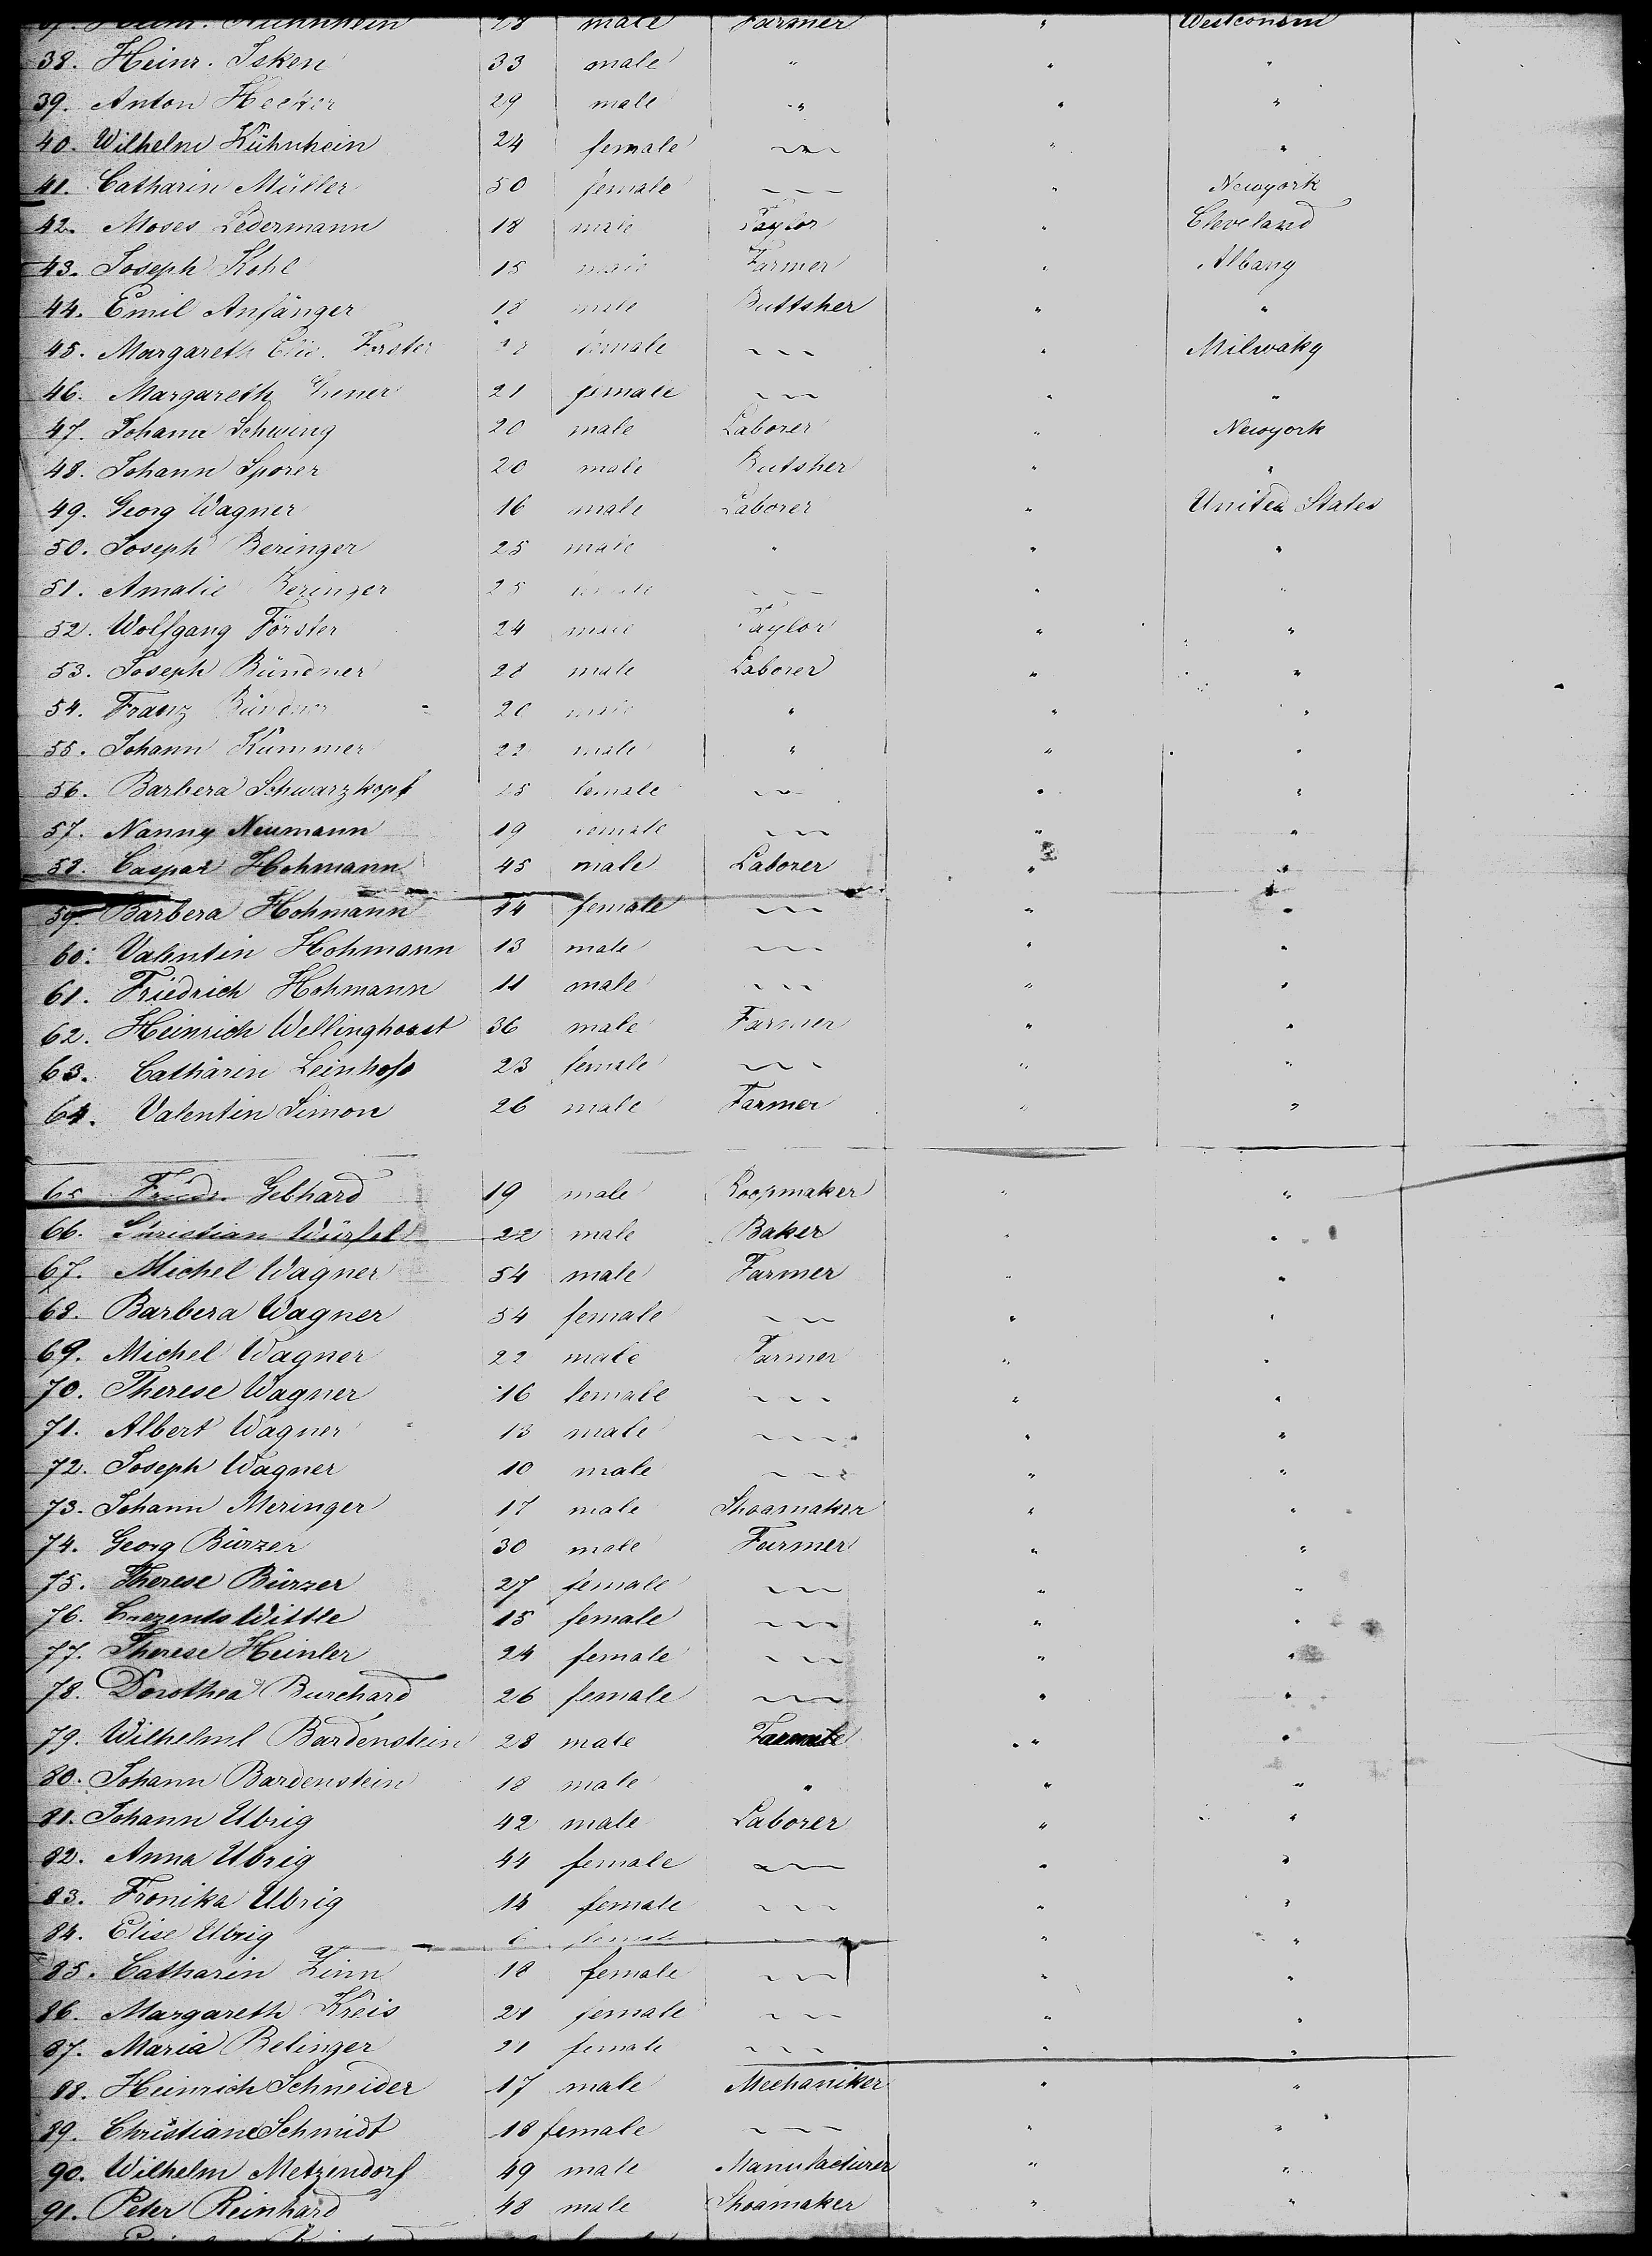 male Farmer " Westconsin
38. Heinr. Isken 33 male " " "
39. Anton Hecker 29 male " " "
40. Wilhelm Kühnhein 24 female ~~~ " "
41. Catharin Müller 50 female ~~~ " Newyork
42. Moses Ledermann 18 male Taylor " Cleveland
43. Joseph Kohl 15 male Farmer " Albany
44. Emil Anfänger 18 male Buttsher " "
45. Margareth Forster female ~~~ " Milwaky
46. Margareth 21 female ~~~ " "
47. Johann Schwing 20 male Laborer " Newyork
48. Johann Sporer 20 male Butsher " "
49. Georg Wagner 16 male Laborer " United States
50. Joseph Beringer 25 male " " "
51. Amalie Beringer 25 female ~~~ " "
52. Wolfgang Förster 24 male Taylor " "
53. Joseph Bündner 28 male Laborer " "
54. Franz Bündner 20 male " " "
55. Johann Kummer 22 male " " "
56. Barbera Schwarzkopf 25 female ~~ " "
57. Nanny Neumann 19 female ~~~ " "
58. Caspar Hohmann 45 male Laborer " "
59. Barbera Hohmann 44 female ~~~ " "
60. Valentin Hohmann 13 male ~~~ " "
61. Friedrich Hohmann 11 male ~~~ " "
62. Heinrich Wellinghorst 36 male Farmer " "
63. Catharin Leinhof 23 female ~~~ " "
64. Valentin Simon 26 male Farmer " "
65 Friedr. Gebhard 19 male Roopmaker " "
66. Christian Würfel 22 male Baker " "
67. Michel Wagner 54 male Farmer " "
68. Barbera Wagner 54 female ~~~ " "
69. Michel Wagner 22 male Farmer " "
70. Therese Wagner 16 female ~~~ " "
71. Albert Wagner 13 male ~~~ " "
72. Joseph Wagner 10 male ~~~ " "
73. Johann Meringer 17 male Shoamaker " "
74. Georg Bürzer 30 male Farmer " "
75. Therese Bürzer 27 female ~~~ " "
76. Wittle 15 female ~~~ " "
77. Therese Heinler 24 female ~~~ " "
78. Dorothea Burchard 26 female ~~~ " "
79. Wilhelml Bardenstein 28 male " "
80. Johann Bardenstein 18 male " " "
81. Johann Ubrig 42 male Laborer " "
82. Anna Ubrig 44 female ~~~ " "
83. Fronika Ubrig 14 female ~~~ " "
84. Elise Ubrig 6 female ~~~ " "
85. Catharin Zinn 18 female ~~~ " "
86. Margareth Kreis 21 female ~~~ " "
87. Maria Belinger 21 female ~~~ " "
88. Heinrich Schneider 17 male Mechaniker " "
89. Christiane Schmidt 18 female ~~~ " "
90. Wilhelm Metzendorf 49 male Manufacturer " "
91. Peter Reinhard 48 male Shoamaker " "